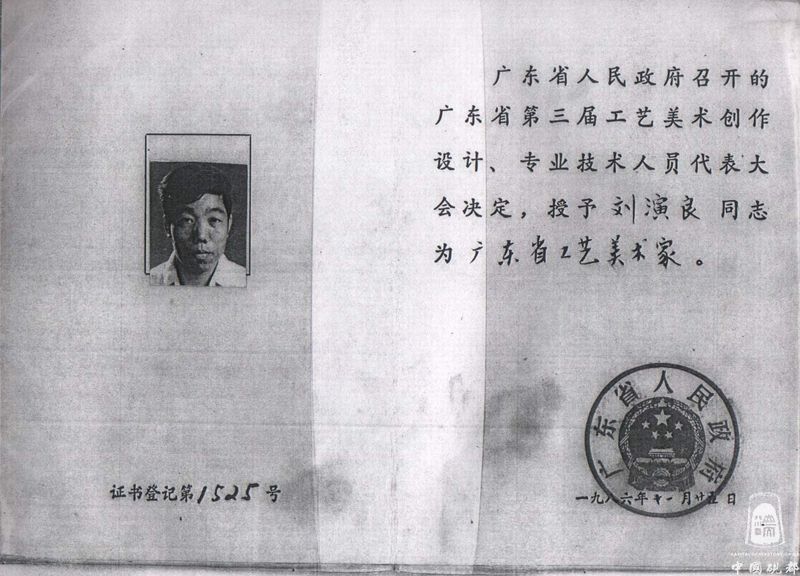 广东省人民政府召开的
广东省第三届工艺美术创作
设计、专业技术人员代表大
会决定，授予刘演良同志
为广东省工艺美术家。
广东省人民政府
证书登记第1525号
一九八六年十一月廿五日
中国砚都